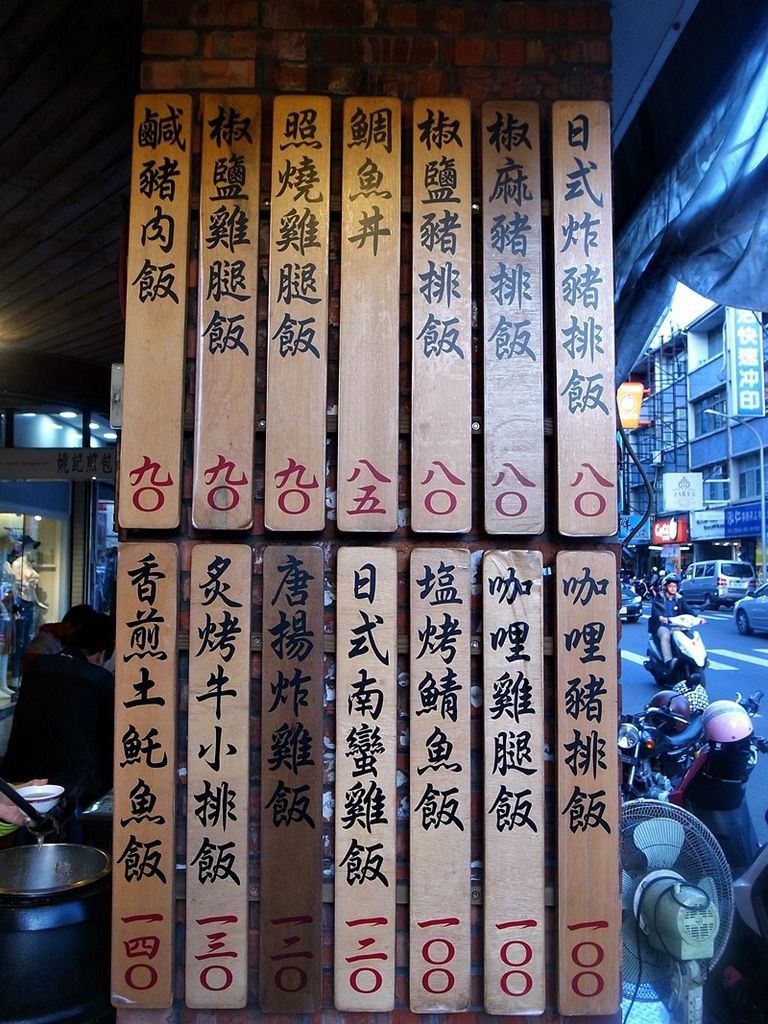 日式炸豬排飯 八〇
椒麻豬排飯 八〇
椒鹽豬排飯 八〇
鯛魚丼 八五
照燒雞腿飯 九〇
椒鹽雞腿飯 九〇
鹹豬肉飯 九〇
咖哩豬排飯 一〇〇
咖哩雞腿飯 一〇〇
塩烤鯖魚飯 一〇〇
日式南蠻雞飯 一二〇
唐揚炸雞飯 一二〇
炙烤牛小排飯 一三〇
香煎土魠魚飯 一四〇
姚記煎包
快速冲印